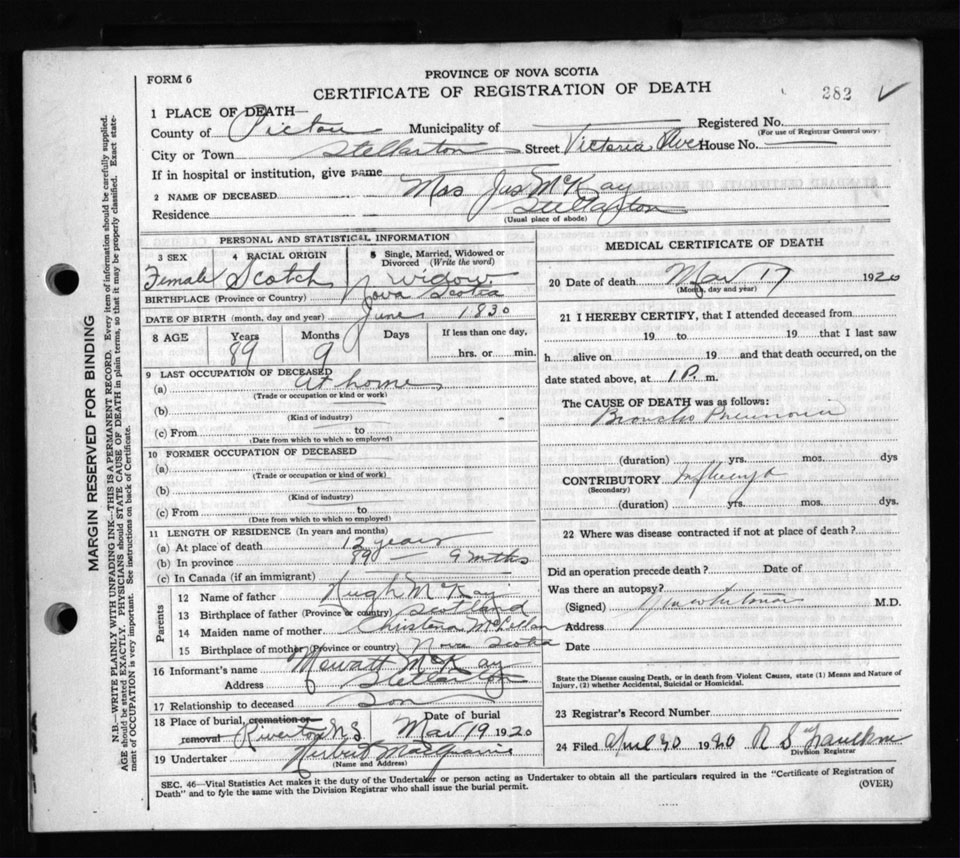 PROVINCE OF NOVA SCOTIA
FORM 6
CERTIFICATE OF REGISTRATION OF DEATH
282
1 PLACE OF DEATH—
County of Pictou Municipality of Registered No.
(For use of Registrar General only)
City or Town Stellarton Street Victoria Ave House No.
If in hospital or institution, give name
2 NAME OF DECEASED Mrs Jas McKay
Residence Stellarton
(Usual place of abode)
PERSONAL AND STATISTICAL INFORMATION
3 SEX 4 RACIAL ORIGIN 5 Single, Married, Widowed or Divorced (Write the word)
Female Scotch Widow
BIRTHPLACE (Province or Country) Nova Scotia
DATE OF BIRTH (month, day and year) June 1830
8 AGE Years Months Days If less than one day,
89 9 hrs. or min.
9 LAST OCCUPATION OF DECEASED
(a) At home
(Trade or occupation or kind or work)
(b)
(Kind of industry)
(c) From to
(Date from which to which so employed)
10 FORMER OCCUPATION OF DECEASED
(a)
(Trade or occupation or kind of work)
(b)
(Kind of industry)
(c) From to
(Date from which to which so employed)
11 LENGTH OF RESIDENCE (In years and months)
(a) At place of death 12 years
(b) In province 89 — 9 mths
(c) In Canada (if an immigrant)
Parents
12 Name of father Hugh McKay
13 Birthplace of father (Province or country) Scotland
14 Maiden name of mother Christena McLellan
15 Birthplace of mother (Province or country) Nova Scotia
16 Informant's name McKay
Address Stellarton
17 Relationship to deceased Son
18 Place of burial, cremation or removal Riverton N.S Date of burial Mar 19 1920
19 Undertaker Herbert
(Name and Address)
MEDICAL CERTIFICATE OF DEATH
20 Date of death Mar 17 1920
(Month, day and year)
21 I HEREBY CERTIFY, that I attended deceased from
19 to 19 that I last saw
h alive on 19 and that death occurred, on the
date stated above, at 1 P. m.
The CAUSE OF DEATH was as follows:
Broncho Pneumonia
(duration) yrs. mos. dys
CONTRIBUTORY Influenza
(Secondary)
(duration) yrs. mos. dys.
22 Where was disease contracted if not at place of death?
Did an operation precede death? Date of
Was there an autopsy?
(Signed) M.D.
Address
Date
State the Disease causing Death, or in death from Violent Causes, state (1) Means and Nature of
Injury, (2) whether Accidental, Suicidal or Homicidal.
23 Registrar's Record Number
24 Filed April 30 1920 R S
Division Registrar
SEC. 46—Vital Statistics Act makes it the duty of the Undertaker or person acting as Undertaker to obtain all the particulars required in the "Certificate of Registration of
Death" and to fyle the same with the Division Registrar who shall issue the burial permit.
(OVER)
MARGIN RESERVED FOR BINDING
N.B.—WRITE PLAINLY WITH UNFADING INK—THIS IS A PERMANENT RECORD. Every item of information should be carefully supplied.
AGE should be stated EXACTLY. PHYSICIANS should STATE CAUSE OF DEATH in plain terms, so that it may be properly classified. Exact state-
ment of OCCUPATION is very important. See instructions on back of Certificate.